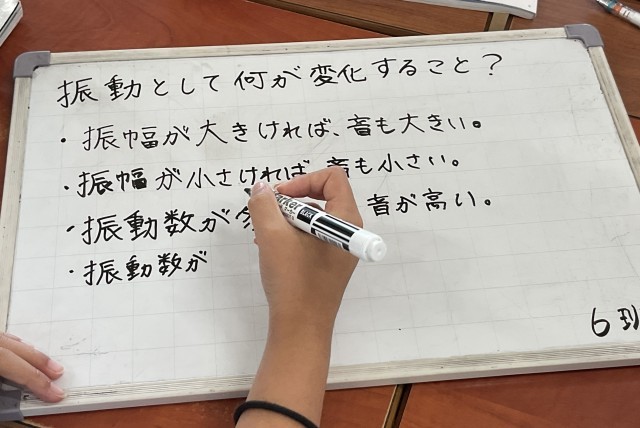 振動として何が変化すること？
・振幅が大きければ、音も大きい。
・振幅が小さければ、音も小さい。
・振動数が 音が高い。
・振動数が
6班